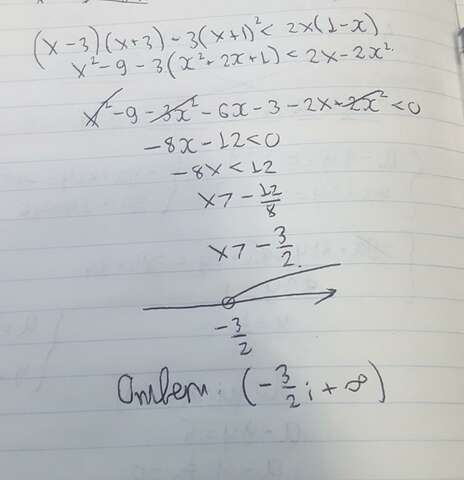 (x-3)(x+3)-3(x+1)²<2x(1-x)
x²-9-3(x²+2x+1)<2x-2x²
x²-9-3x²-6x-3-2x+2x²<0
-8x-12<0
-8x<12
x>-12/8
x>-3/2
-3/2
Ответ: (-3/2; +∞)